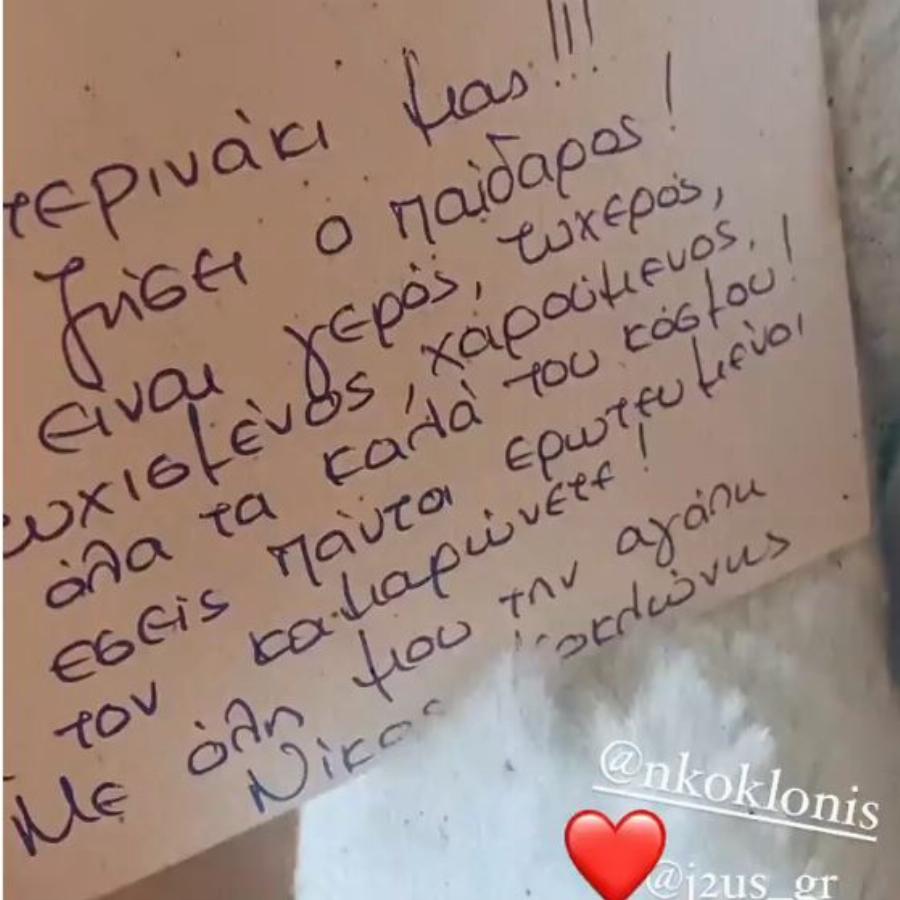 τερινάκι μας!!!
ζήσει ο παίδαρος!
είναι γερός, τυχερός,
τυχισμένος, χαρούμενος,
όλα τα καλά του κόσμου!
εσείς πάντα ερωτευμένοι
τον καμαρώνετε!
Με όλη μου την αγάπη
Νίκος Κοκλώνης
@nkoklonis
@j2us_gr